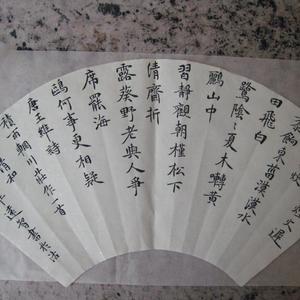 火遲
餉東菑漠漠水
田飛白
鷺陰〻夏木囀黃
鸝山中
習靜觀朝槿松下
清齋折
露葵野老與人爭
席罷海
鷗何事更相疑
唐王維詩
積雨輞川莊作一首
清和